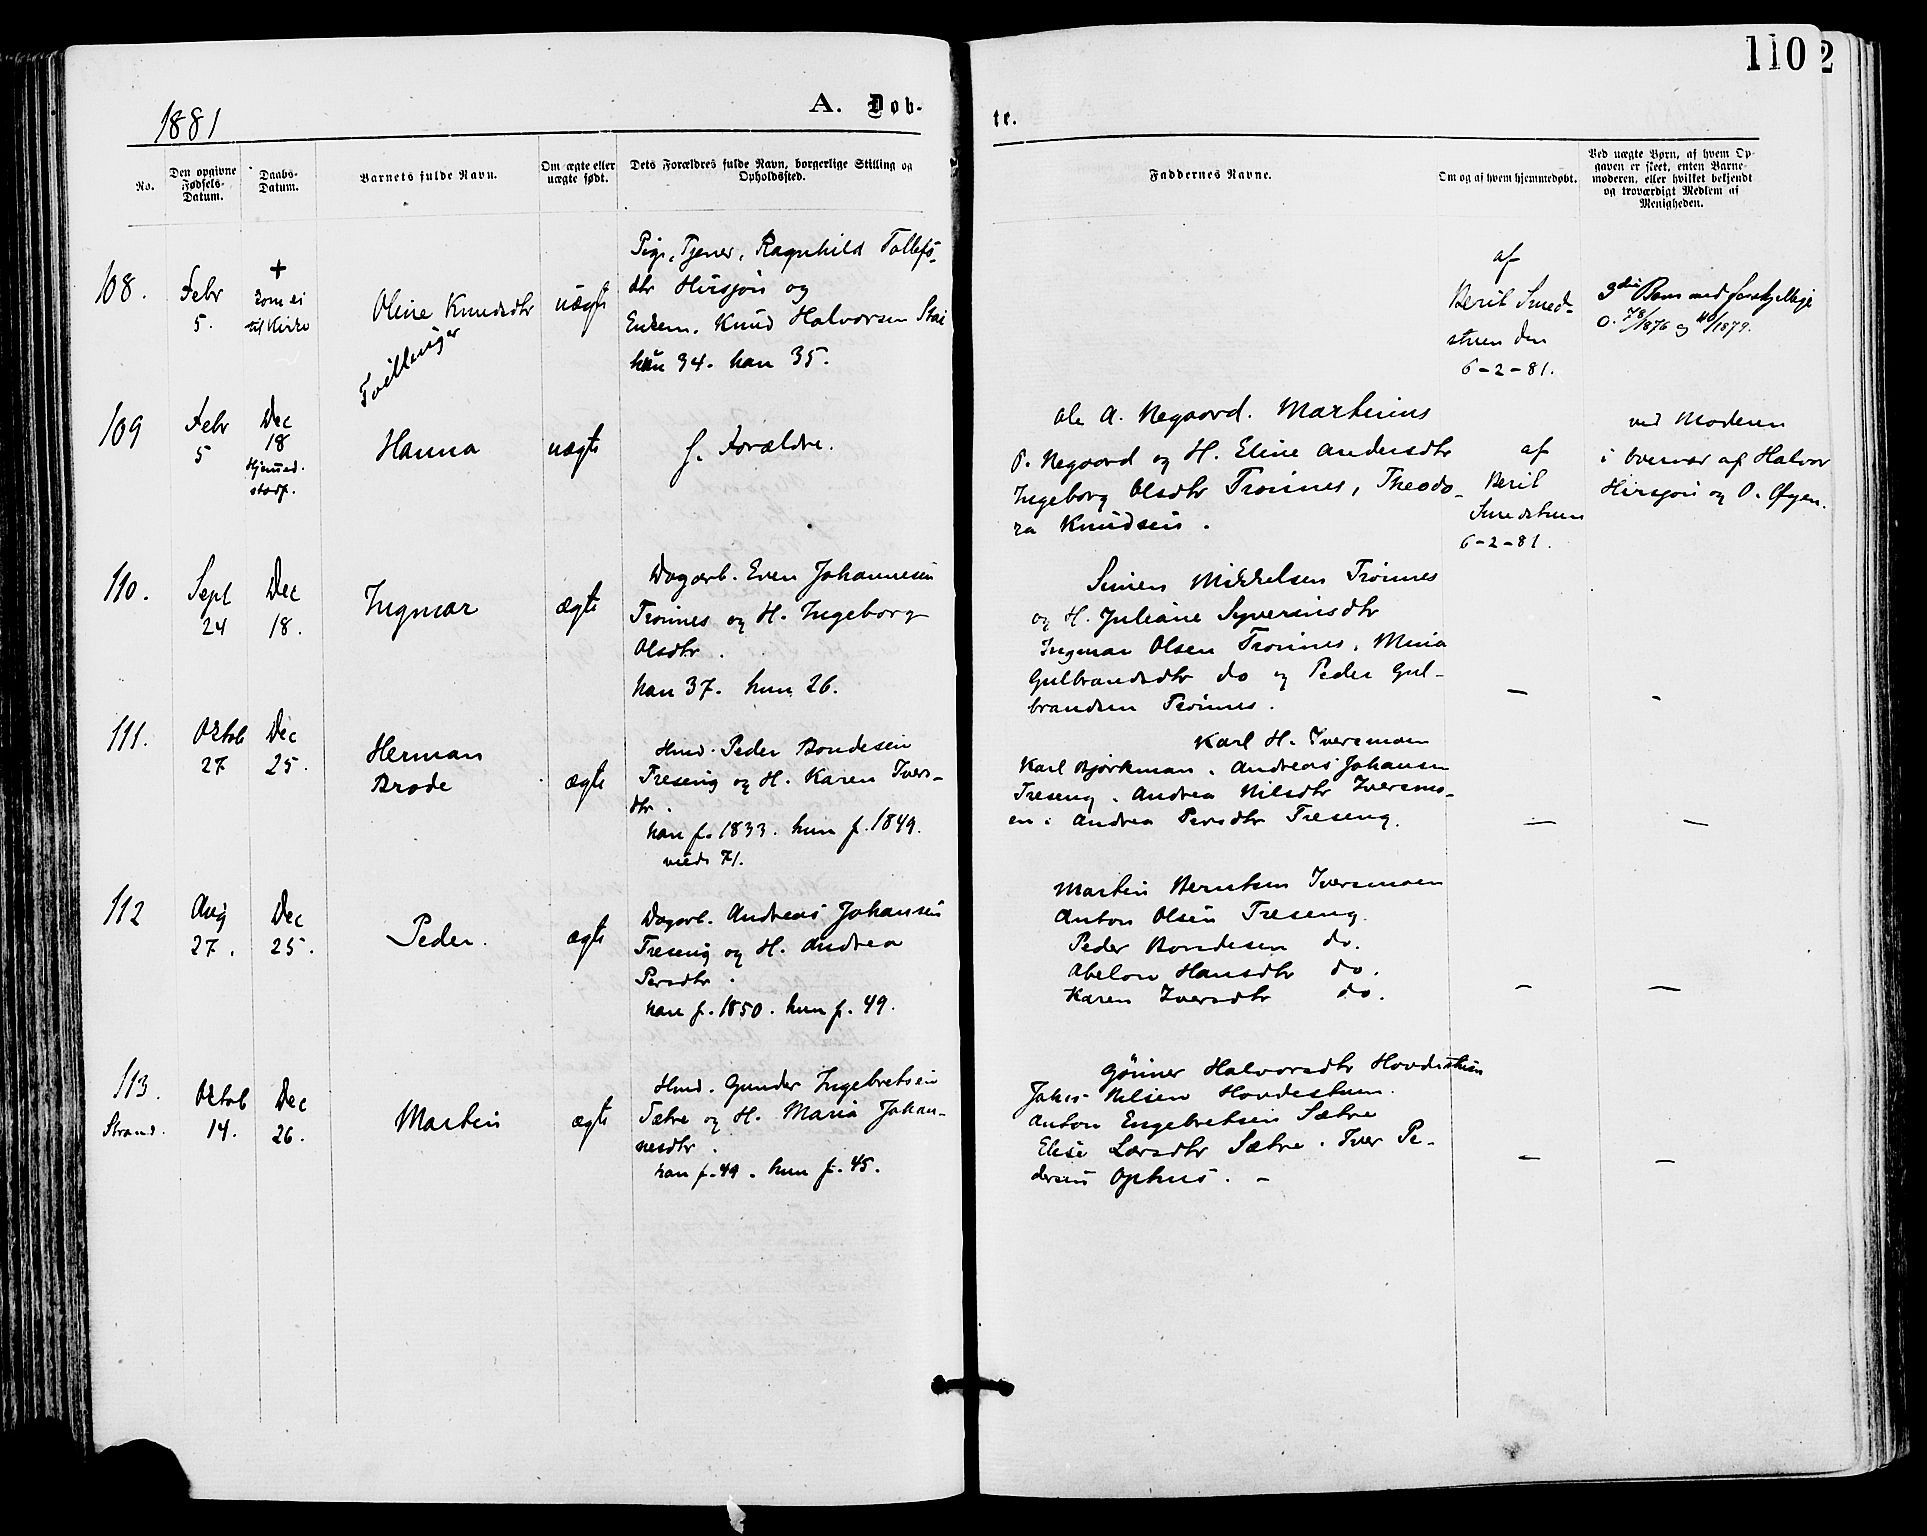 110 2
1881
A. Døb-
te.
No.
Den opgivne Fødsels-Datum.
Daabs-Datum.
Barnets fulde Navn.
Om ægte eller uægte født.
Dets Forældres fulde Navn, borgerlige Stilling og Opholdssted.
Faddernes Navne.
Om og af hvem hjemmedøbt.
Ved uægte Børn, af hvem Op-
gaven er skeet, enten Barne-
moderen, eller hvilket bekjendt
og troværdigt Medlem af
Menigheden.
108.
Febr
5.
+
kom ei
til Kirke
Oline Knudsdtr
Tvillinger
uægte
Pige, Tjener, Ragnhild Tollefs-
dtr Hirsjøn og
Enkem. Knud Halvorsen Stai
hun 34. han 35.
af
Berit Smed-
stuen den
6-2-81.
3die Barn med forskjellige
109
Febr
5
Dec
18
Hjemmed.
stadf.
Hanna
uægte
f. Forældre.
Ole A. Negaard. Martinius
O. Negaard og H. Eline Andersdtr
Ingeborg Olsdtr Trønnes, Theodo-
ra Knudsen.
af
Berit
Smedstuen
6-2-81.
ved Moderen
i Overvær af Halvor
Hirsjøn og O. Øyen.
110.
Sept
24
Dec
18.
Ingmar
ægte
Dagarb. Even Johannesen
Trønnes og H. Ingeborg
Olsdtr.
han 37. hun 26.
Simen Mikkelsen Trønnes
og H. Juliane Syverinsdtr
Ingmar Olsen Trønnes, Mina
Gulbrandsdtr do og Peder Gul-
brandsen Trønnes.
—
-
111.
Oktob
27
Dec
25.
Herman
Brode
ægte
Hmd. Peder Bondesen
Treseng og H. Karen Ivers-
dtr.
han f. 1833. hun f. 1849.
viede 71.
Karl H. Iversmoen
Karl Bjørkman. Andreas Johansen
Treseng. Andrea Nilsdtr Iversmo-
en. Andrea Persdtr Treseng.
—
—
112
Aug
27.
Dec
25.
Peder.
ægte
Dagarb. Andreas Johansen
Treseng og H. Andrea
Persdtr.
han f. 1850. hun f. 49.
Martin Berntsen Iversmoen
Anton Olsen Treseng.
Peder Bondesen do.
Abelon Hansdtr do.
Karen Iversdtr do.
—
—
113.
Strand.
Oktob
14.
Dec
26.
Martin
ægte
Hmd. Gunder Ingebretsen
Sætre og H. Maria Johan-
nesdtr.
han f. 49. hun f. 45.
Gønner Halvorsdtr Hovdestuen
Johs Nilsen Hovdestuen.
Anton Engebretsen Sætre
Elise Larsdtr Sætre. Iver Pe-
dersen Ophus. -
—
—